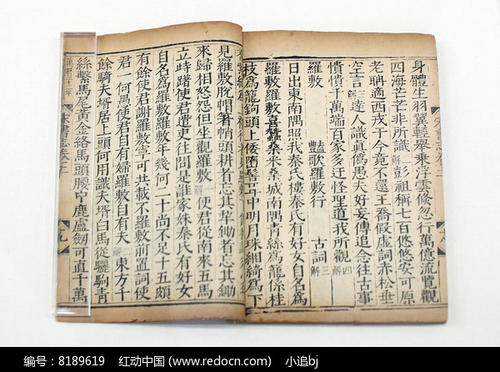 身體生羽翼輕舉乘浮雲倏忽行萬億流覽觀
四海芒芒非所識解彭祖稱七百悠悠安可原
老聃適西戎于今竟不還王喬假虛詞赤松垂
空言達人識真偽愚夫好妄傳追念往古事
憒憒千萬端百家多迂怪聖道我所觀四解
羅敷 豔歌羅敷行 古詞
日出東南隅照我秦氏樓秦氏有好女自名爲
羅敷羅敷喜蠶桑采桑城南隅青絲爲籠係桂
枝爲籠鉤頭上倭墮髻耳中明月珠緗綺爲下
見羅敷脫帽著帩頭耕者忘其犁鋤者忘其鋤
來歸相怒怨但坐觀羅敷解使君從南來五馬
立踟躇使君遣吏往問是誰家姝秦氏有好女
自名爲羅敷羅敷年幾何二十尚不足十五頗
有餘使君謝羅敷寧可共載不羅敷前置詞使
君一何愚使君自有婦羅敷自有夫解東方千
餘騎夫壻居上頭何用識夫壻白馬從驪駒青
絲繫馬尾黃金絡馬頭腰中鹿盧劍可直千萬
宋書志卷二
编号：8189619 红动中国 (www.redocn.com) 小追bj